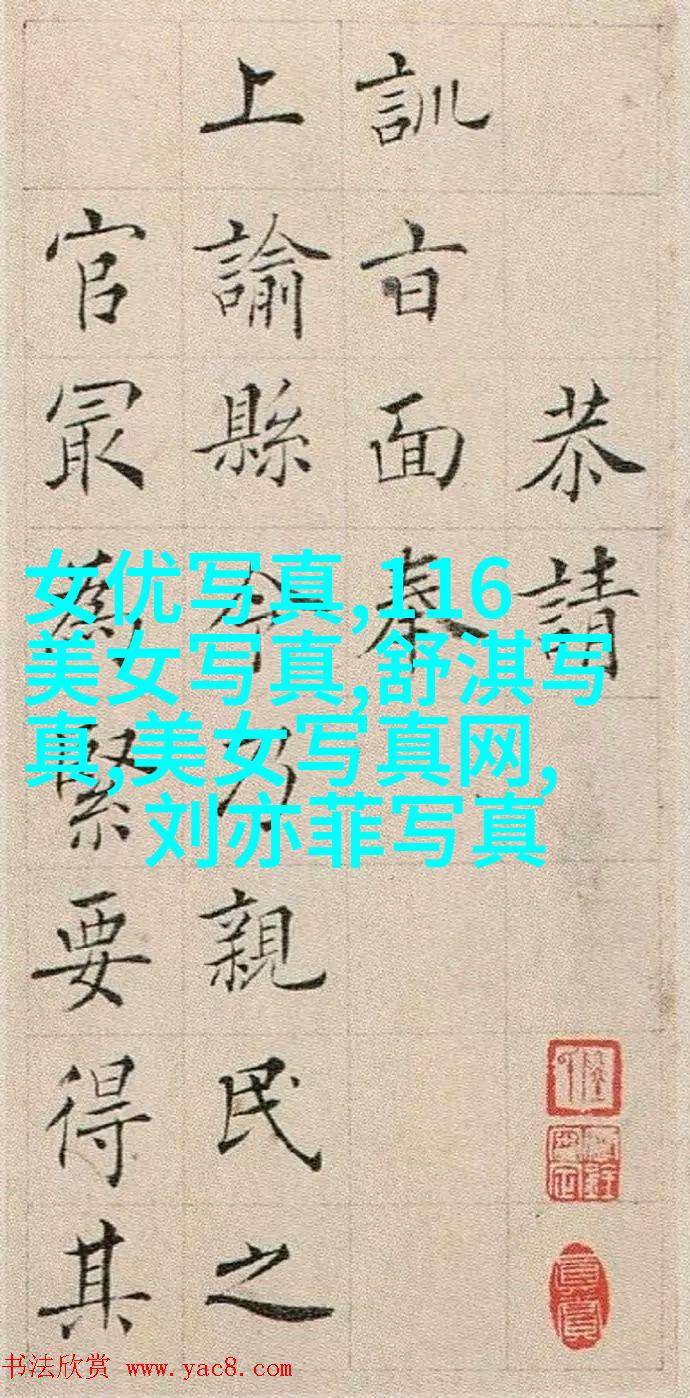 恭請
訓旨面奏
上諭縣令乃親民之
官冣為緊要得其
女优写真,116
美女写真,舒淇写
真,美女写真网,
刘亦菲写真
书法欣赏 www.yac8.com